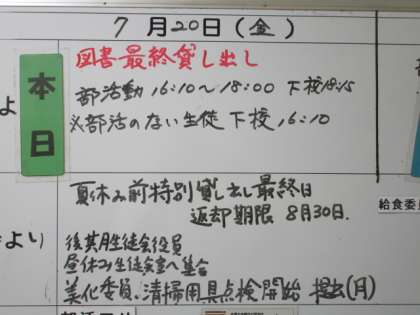 7月20日(金)
本日
図書最終貸し出し
部活動 16:10〜18:00 下校18:15
※部活のない生徒 下校 16:10
よ
夏休み前特別貸し出し最終日
返却期限 8月30日.
給食委員
より
後期生徒会役員
昼休み生徒会室へ集合
美化委員.清掃用具点検開始 提出(月)